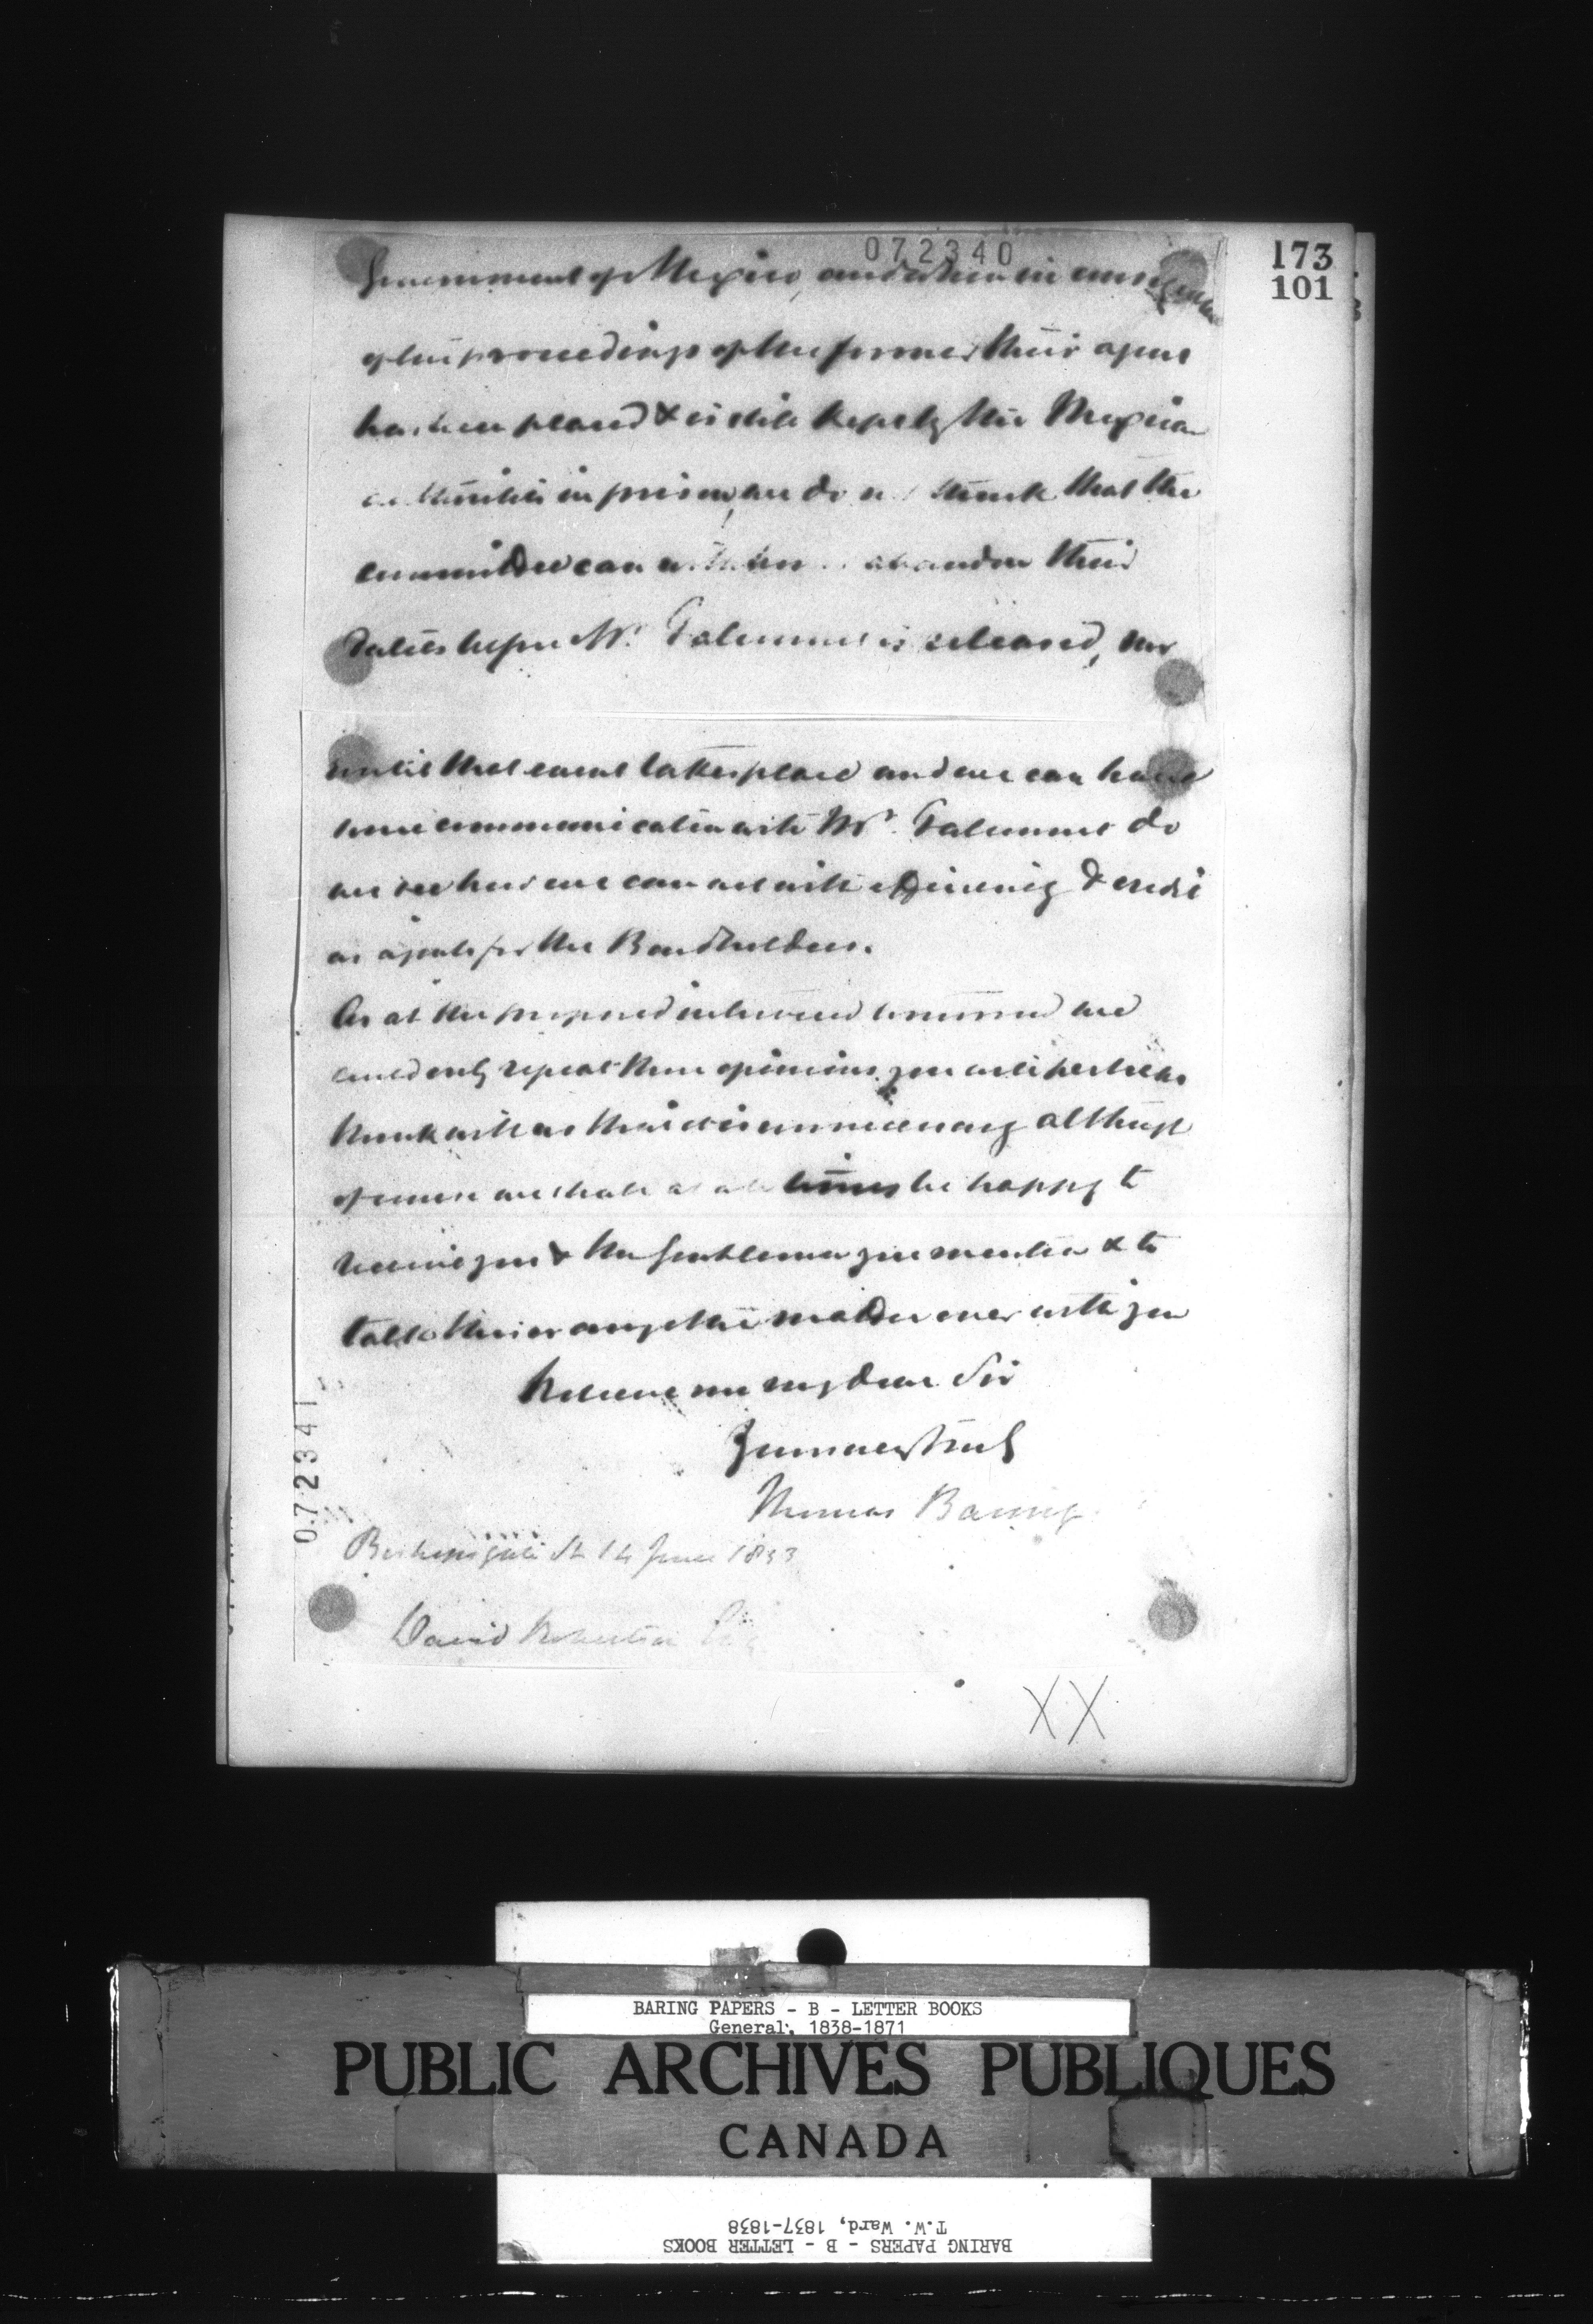 072340
173
101
Government of Mexico, and when in consequence
of the proceedings of the former their agent
has been placed & is still kept by the Mexican
authorities in prison, we do not think that the
committee can abandon their
duties before Mr. Falconnet is released, nor
until that event takes place and we can have
some communication with Mr. Falconnet do
we see how we can act with efficiency & credit
as agents for the Bondholders.
As at the proposed interview we
could only repeat these opinions you will perhaps
think with us that it is unnecessary although
of course we shall at all times be happy to
receive you & the Gentlemen you mention & to
talk this or any other matter over with you
Believe me my dear Sir
Yours very truly
Thomas Baring
Bishopsgate St 14 June 1853
David Robertson Esq
072341
XX
BARING PAPERS - B - LETTER BOOKS
General, 1838-1871
PUBLIC ARCHIVES PUBLIQUES
CANADA
BARING PAPERS - B - LETTER BOOKS
T.W. Ward, 1837-1838